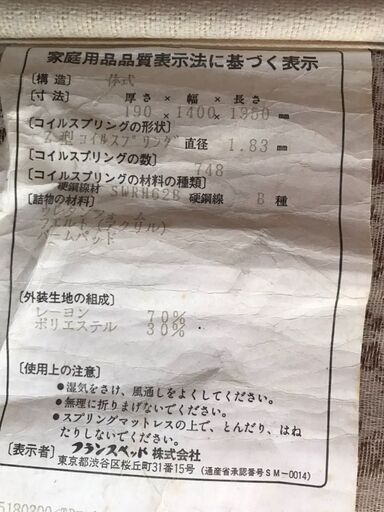 家庭用品品質表示法に基づく表示
[構造] 体式
[寸法] 厚さ×幅×長さ
190×1400×1950 mm
[コイルスプリングの形状]
Z型コイルスプリング 直径 1.83 mm
[コイルスプリングの数] 748
[コイルスプリングの材料の種類]
硬鋼線材 SWRH62B 硬鋼線 B 種
[詰物の材料]
[外装生地の組成]
レーヨン 70%
ポリエステル 30%
[使用上の注意]
●湿気をさけ、風通しをよくしてください。
●無理に折りまげないでください。
●スプリングマットレスの上で、とんだり、はね
たりしないでください。
[表示者] フランスベッド株式会社
東京都渋谷区桜丘町31番15号 (通産省承認番号SM-0014)